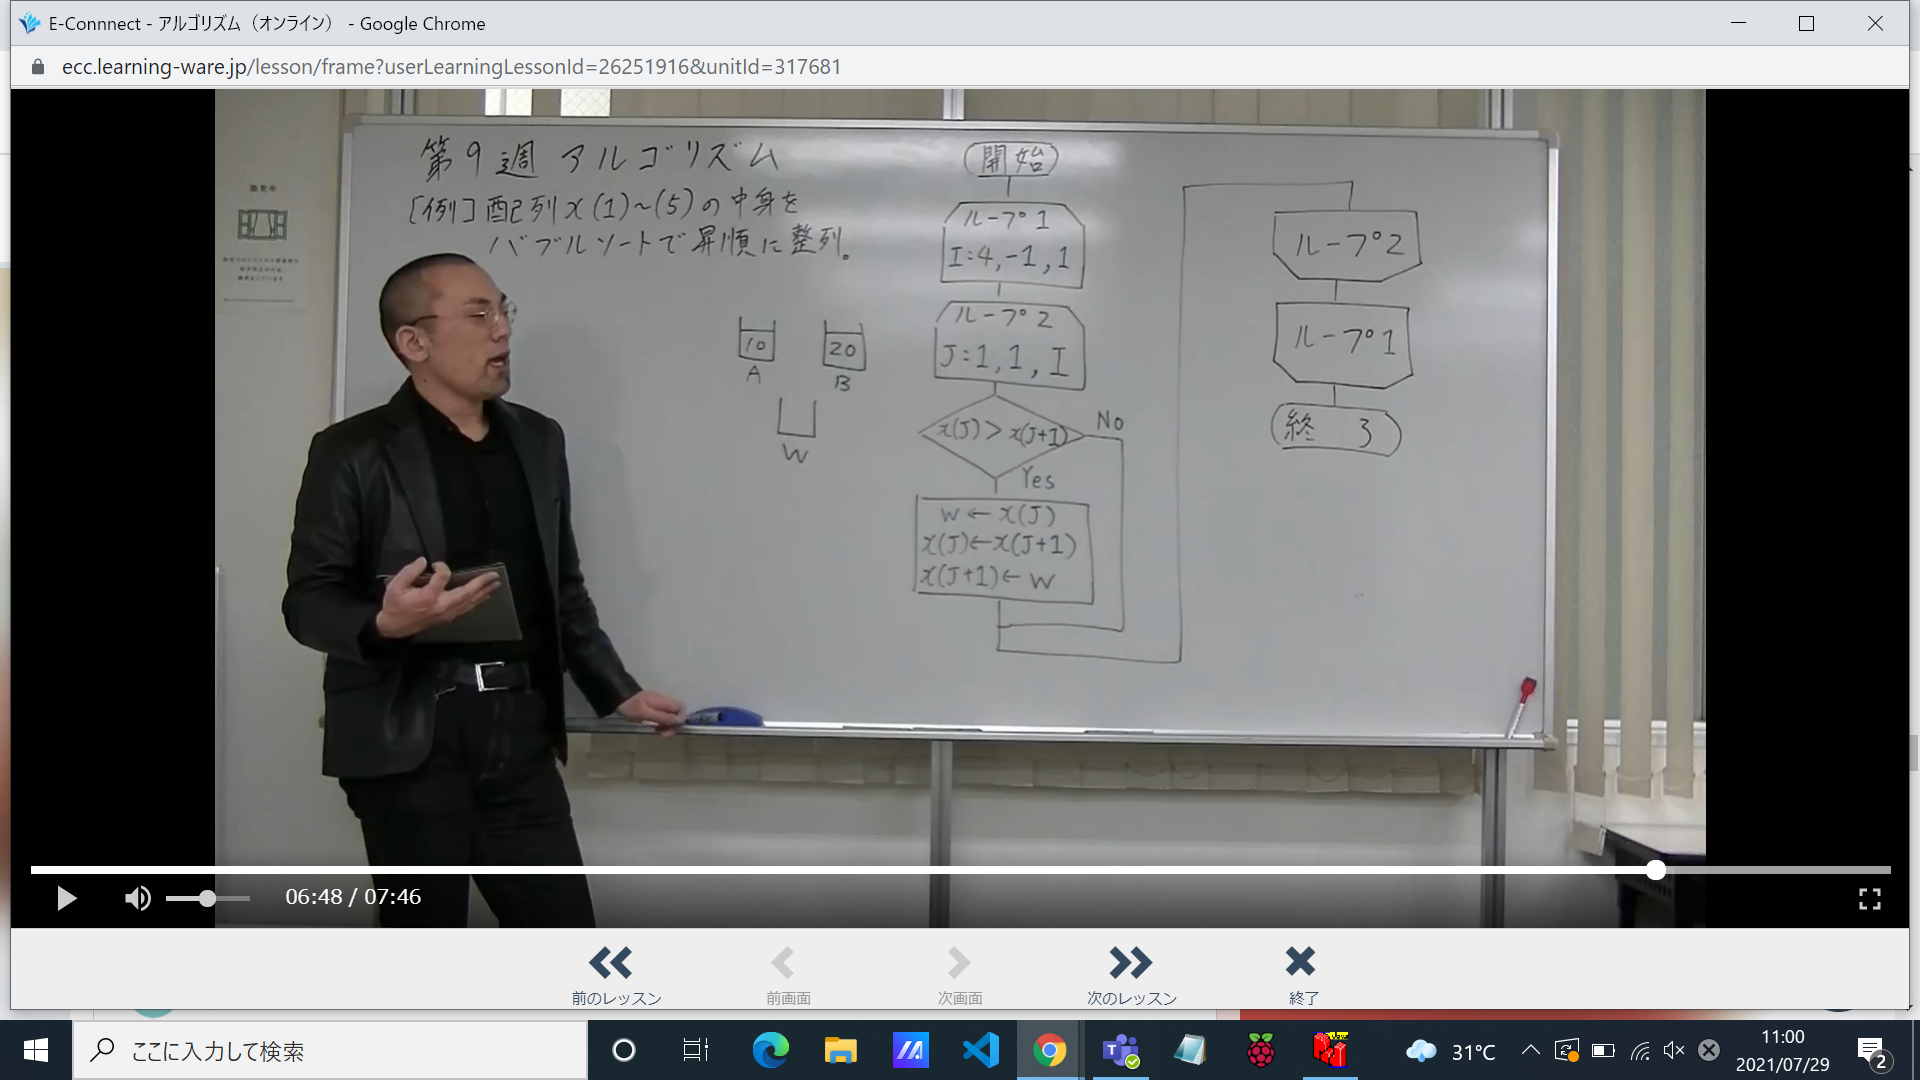 E-Connnect - アルゴリズム（オンライン） - Google Chrome
ecc.learning-ware.jp/lesson/frame?userLearningLessonId=26251916&unitId=317681
第9週 アルゴリズム
[例] 配列x(1)~(5)の中身を
バブルソートで昇順に整列。
10
A
20
B
W
開始
ループ1
I:4,-1,1
ループ2
J:1,1,I
x(J)>x(J+1)
No
Yes
W←x(J)
x(J)←x(J+1)
x(J+1)←W
ループ2
ループ1
終了
換気中
06:48 / 07:46
前のレッスン
前画面
次画面
次のレッスン
終了
ここに入力して検索
31°C
11:00
2021/07/29
2